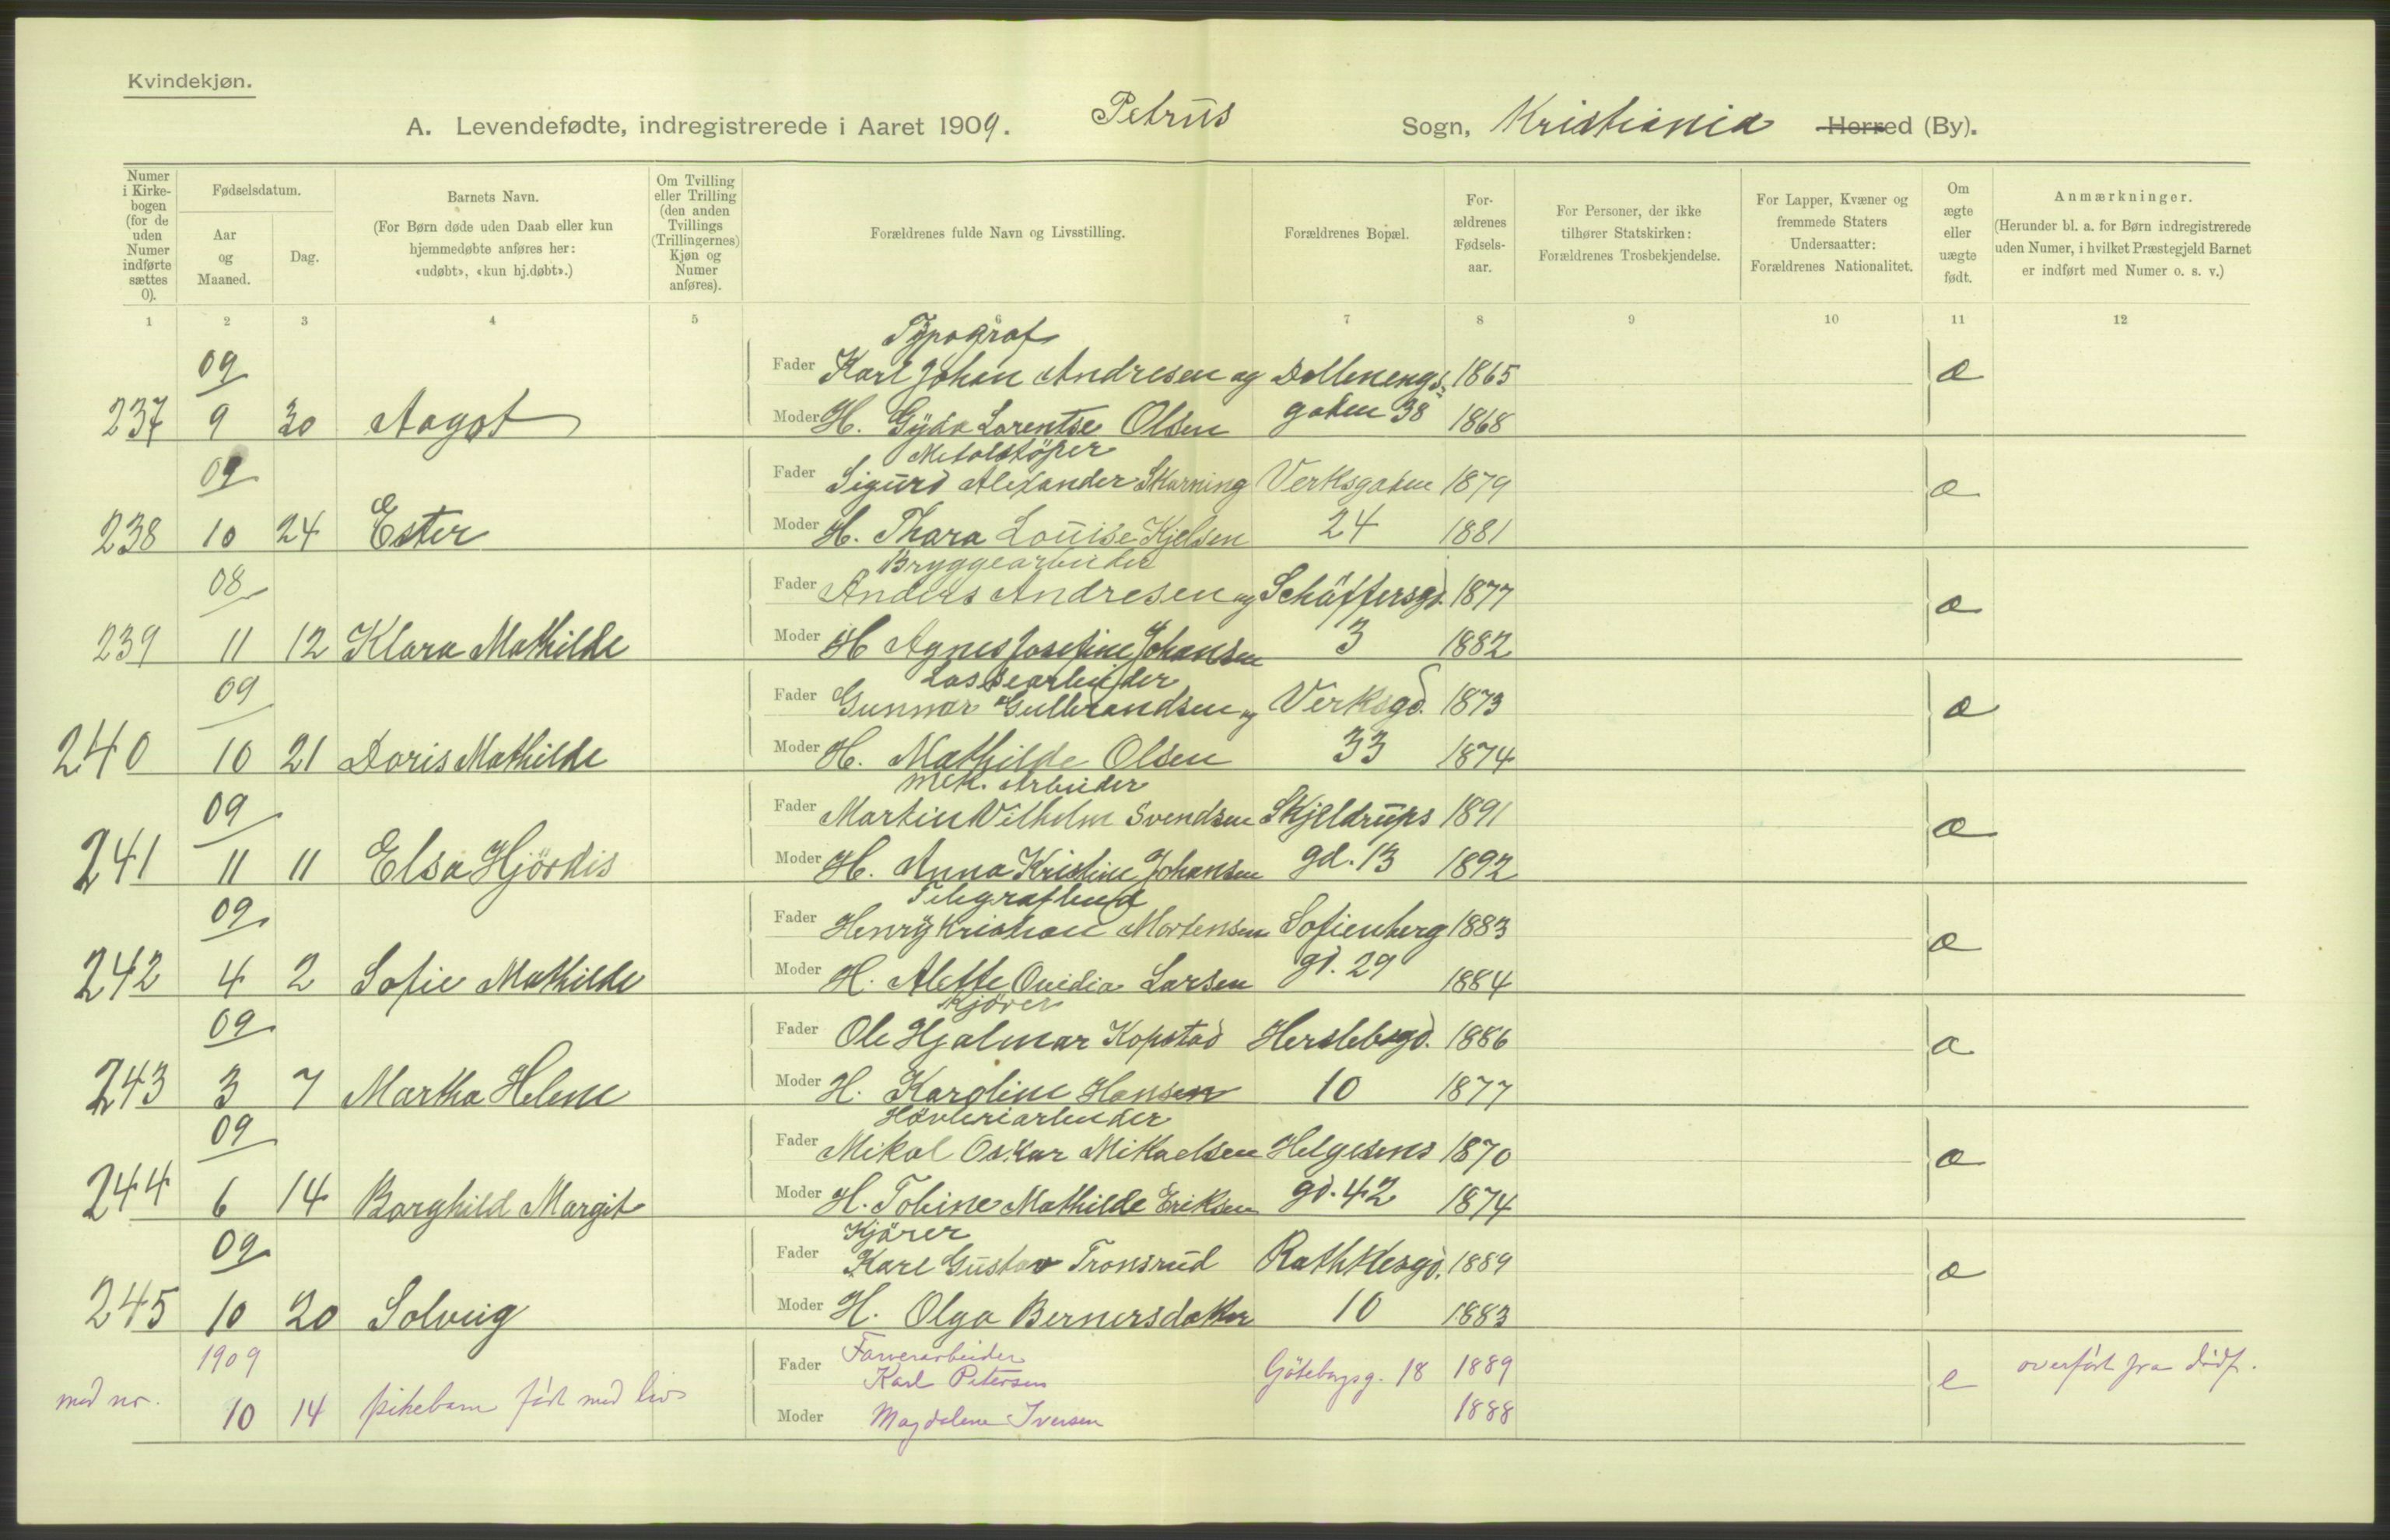 Kvindekjøn.
A. Levendefødte, indregistrerede i Aaret 1909. Petrus Sogn, Kristiania Herred (By).
Numer i Kirke-bogen (for de uden Numer indførte sættes 0).
Fødselsdatum.
Aar og Maaned.
Dag.
Barnets Navn.
(For Børn døde uden Daab eller kun hjemmedøbte anføres her: «udøbt», «kun hj.døbt».)
Om Tvilling eller Trilling (den anden Tvillings (Trillingernes) Kjøn og Numer anføres).
Forældrenes fulde Navn og Livsstilling.
Forældrenes Bopæl.
For-ældrenes Fødsels-aar.
For Personer, der ikke tilhører Statskirken: Forældrenes Trosbekjendelse.
For Lapper, Kvæner og fremmede Staters Undersaatter: Forældrenes Nationalitet.
Om ægte eller uægte født.
Anmærkninger.
(Herunder bl. a. for Børn indregistrerede uden Numer, i hvilket Præstegjeld Barnet er indført med Numer o. s. v.)
1 2 3 4 5 6 7 8 9 10 11 12
Typograf
09 Fader Karl Johan Andresen og Dælenengs 1865 æ
237 9 30 Aagot Moder H. Gyda Lorentse Olsen gaten 38 1868
Metalstøper
09 Fader Sigurd Alexander Skarning Verksgaten 1879 æ
238 10 24 Ester Moder H. Thara Louise Kjelsen 24 1881
Bryggearbeider
08 Fader Anders Andresen og Schäffersgd. 1877 æ
239 11 12 Klara Mathilde Moder H Agnes Josefine Johansen 3 1882
Lossearbeider
09 Fader Gunnar Gulbrandsen og Verksgd. 1873 æ
240 10 21 Doris Mathilde Moder H. Mathilde Olsen 33 1874
Mek. Arbeider
09 Fader Martin Vilhelm Svendsen Skjeldrups 1891 æ
241 11 11 Elsa Hjördis Moder H. Anna Kristine Johansen gd. 13 1892
09 Fader Henry Kristian Mortensen Sofienberg 1883 æ
242 4 2 Sofie Mathilde Moder H. Alette Ovidia Larsen gd. 29 1884
Kjører
09 Fader Ole Hjalmar Kopstad Herslebsgd. 1886 æ
243 3 7 Martha Helene Moder H. Karoline Hansen 10 1877
Høvleriarbeider
09 Fader Mikal Oskar Mikaelsen Helgesens 1870 æ
244 6 14 Borghild Margit Moder H. Tobine Mathilde Eriksen gd. 42 1874
Kjører
09 Fader Karl Gustav Tronsrud Rathkesgd. 1889 æ
245 10 20 Solveig Moder H. Olga Bernersdatter 10 1883
Farverarbeider
1909 Fader Karl Petersen Göteborgsg. 18 1889 e overført fra dødf.
med nr. 10 14 pikebarn født med liv Moder Magdalene Iversen 1888